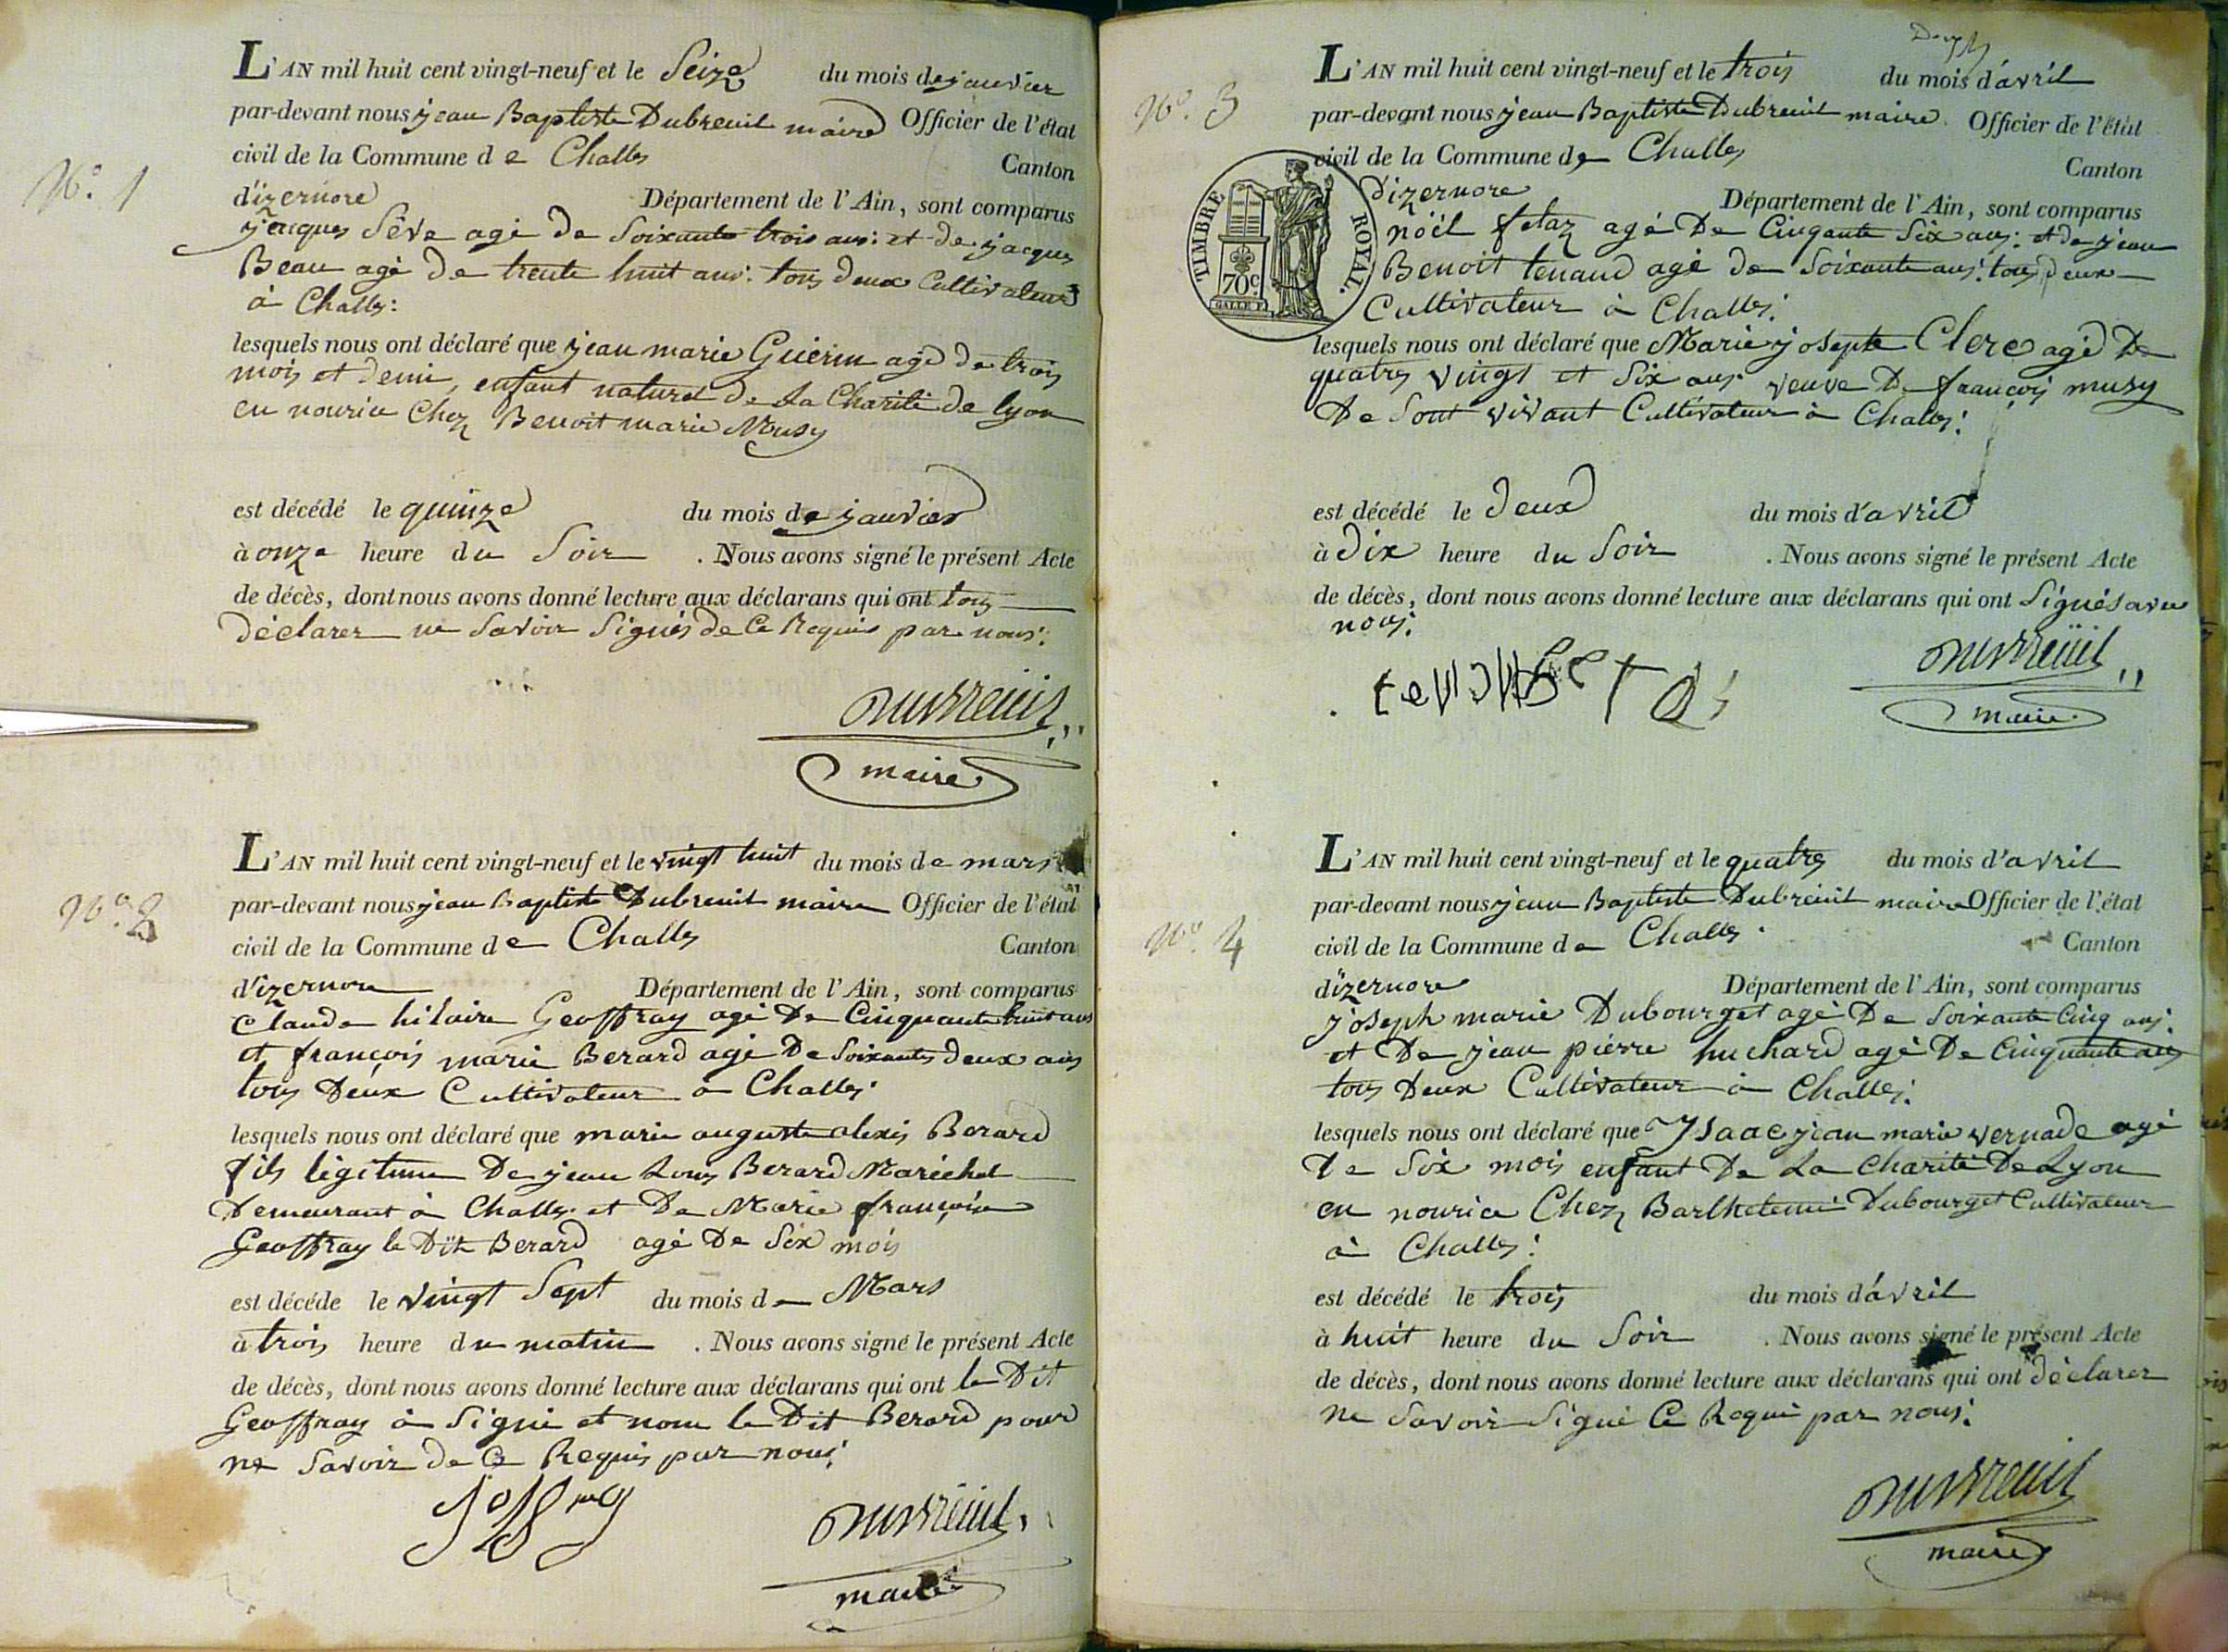 L'AN mil huit cent vingt-neuf et le Seize du mois de janvier
par-devant nous jean Baptiste Dubreuil maire Officier de l'état
civil de la Commune de Challes Canton
N.º 1
d'izernore Département de l'Ain, sont comparus
jacques Sêve agé de Soixante trois ans: et de jacques
Beau agé de trente huit ans: tous deux Cultivateur
à Challes:
lesquels nous ont déclaré que jean marie Guérin agé de trois
mois et demi, enfant naturel de La Charité de lyon
en nourice Chez Benoit marie Musy
est décédé le quinze du mois de janvier
à onze heure du Soir . Nous avons signé le présent Acte
de décès, dont nous avons donné lecture aux déclarans qui ont tous
déclarer ne Savoir Signés de Ce Requis par nous:
Dubreuil
maire
L'AN mil huit cent vingt-neuf et le vingt huit du mois de mars
par-devant nous jean Baptiste Dubreuil maire Officier de l'état
N.º 2
civil de la Commune de Challes Canton
d'izernore Département de l'Ain, sont comparus
Claude hilaire Geoffray agé De Cinquante huit ans
et françois marie Berard agé De Soixante deux ans
tous Deux Cultivateur à Challes:
lesquels nous ont déclaré que marie auguste alexis Berard
fils légitime De jean Louis Berard Maréchal
Demeurant à Challes et De Marie françoise
Geoffray le Dit Berard agé De Six mois
est décéde le vingt Sept du mois de Mars
à trois heure du matin . Nous avons signé le présent Acte
de décès, dont nous avons donné lecture aux déclarans qui ont le Dit
Geoffray à Signé et nom le Dit Berard pour
ne Savoir de Ce Requis par nous:
Dubreuil
maire
L'AN mil huit cent vingt-neuf et le trois du mois d'avril
N.º 3
par-devant nous jean Baptiste Dubreuil maire Officier de l'état
civil de la Commune de Challes Canton
TIMBRE ROYAL.
70c.
GALLE F.
d'izernore Département de l'Ain, sont comparus
noël fétaz agé De Cinqante Six ans: et de jean
Benoit tenand agé de Soixante ans: tous deux
Cultivateur à Challes:
lesquels nous ont déclaré que Marie josepte Clerc agé De
quatres vingt et Six ans veuve De françois musy
De Sont vivant Cultivateur à Challes:
est décédé le Deux du mois d'avril
à Dix heure du Soir . Nous avons signé le présent Acte
de décès, dont nous avons donné lecture aux déclarans qui ont Signés avec
nous:
Dubreuil
maire
L'AN mil huit cent vingt-neuf et le quatres du mois d'avril
par-devant nous jean Baptiste Dubreuil maire Officier de l'état
N.º 4
civil de la Commune de Challes Canton
d'izernore Département de l'Ain, sont comparus
joseph marie Dubourget agé De Soixante Cinq ans:
et De jean pierre huchard agé De Cinquante ans
tous Deux Cultivateur à Challes:
lesquels nous ont déclaré que Ysaac jean marie vernade agé
De Six mois enfant De La Charité De Lyon
en nourice Chez Barthelemi Dubourget Cultivateur
à Challes:
est décédé le trois du mois d'avril
à huit heure du Soir . Nous avons signé le présent Acte
de décès, dont nous avons donné lecture aux déclarans qui ont déclarer
ne Savoir Signé Ce Requi par nous:
Dubreuil
maire